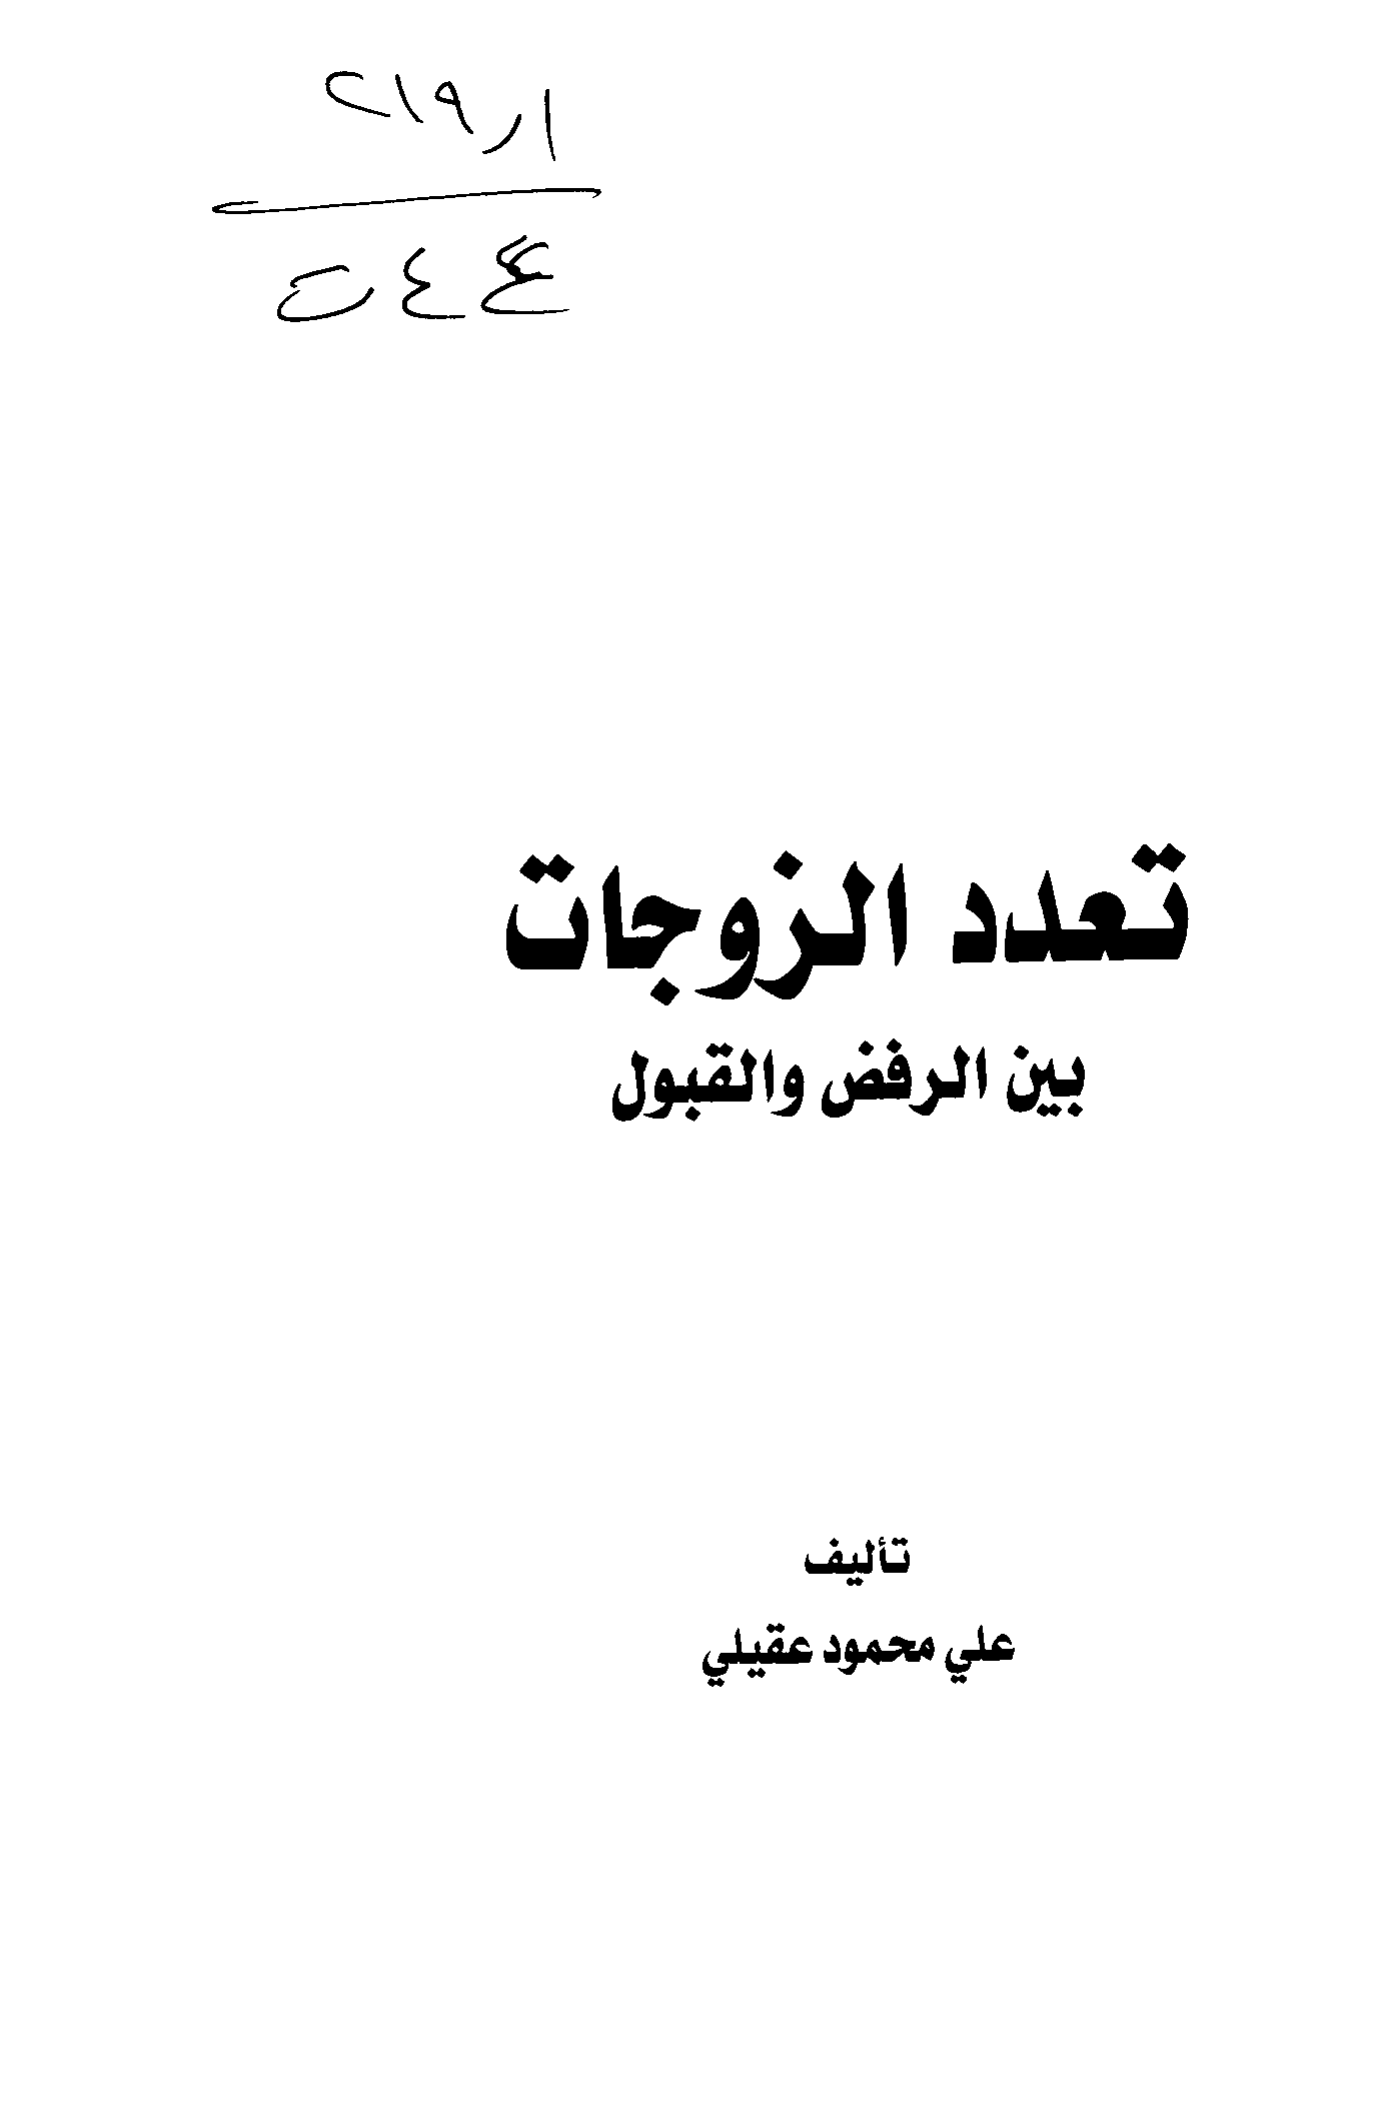 ٢١٩٫١
ع ع ت
تعدد الزوجات
بين الرفض والقبول
تأليف
علي محمود عقيلي